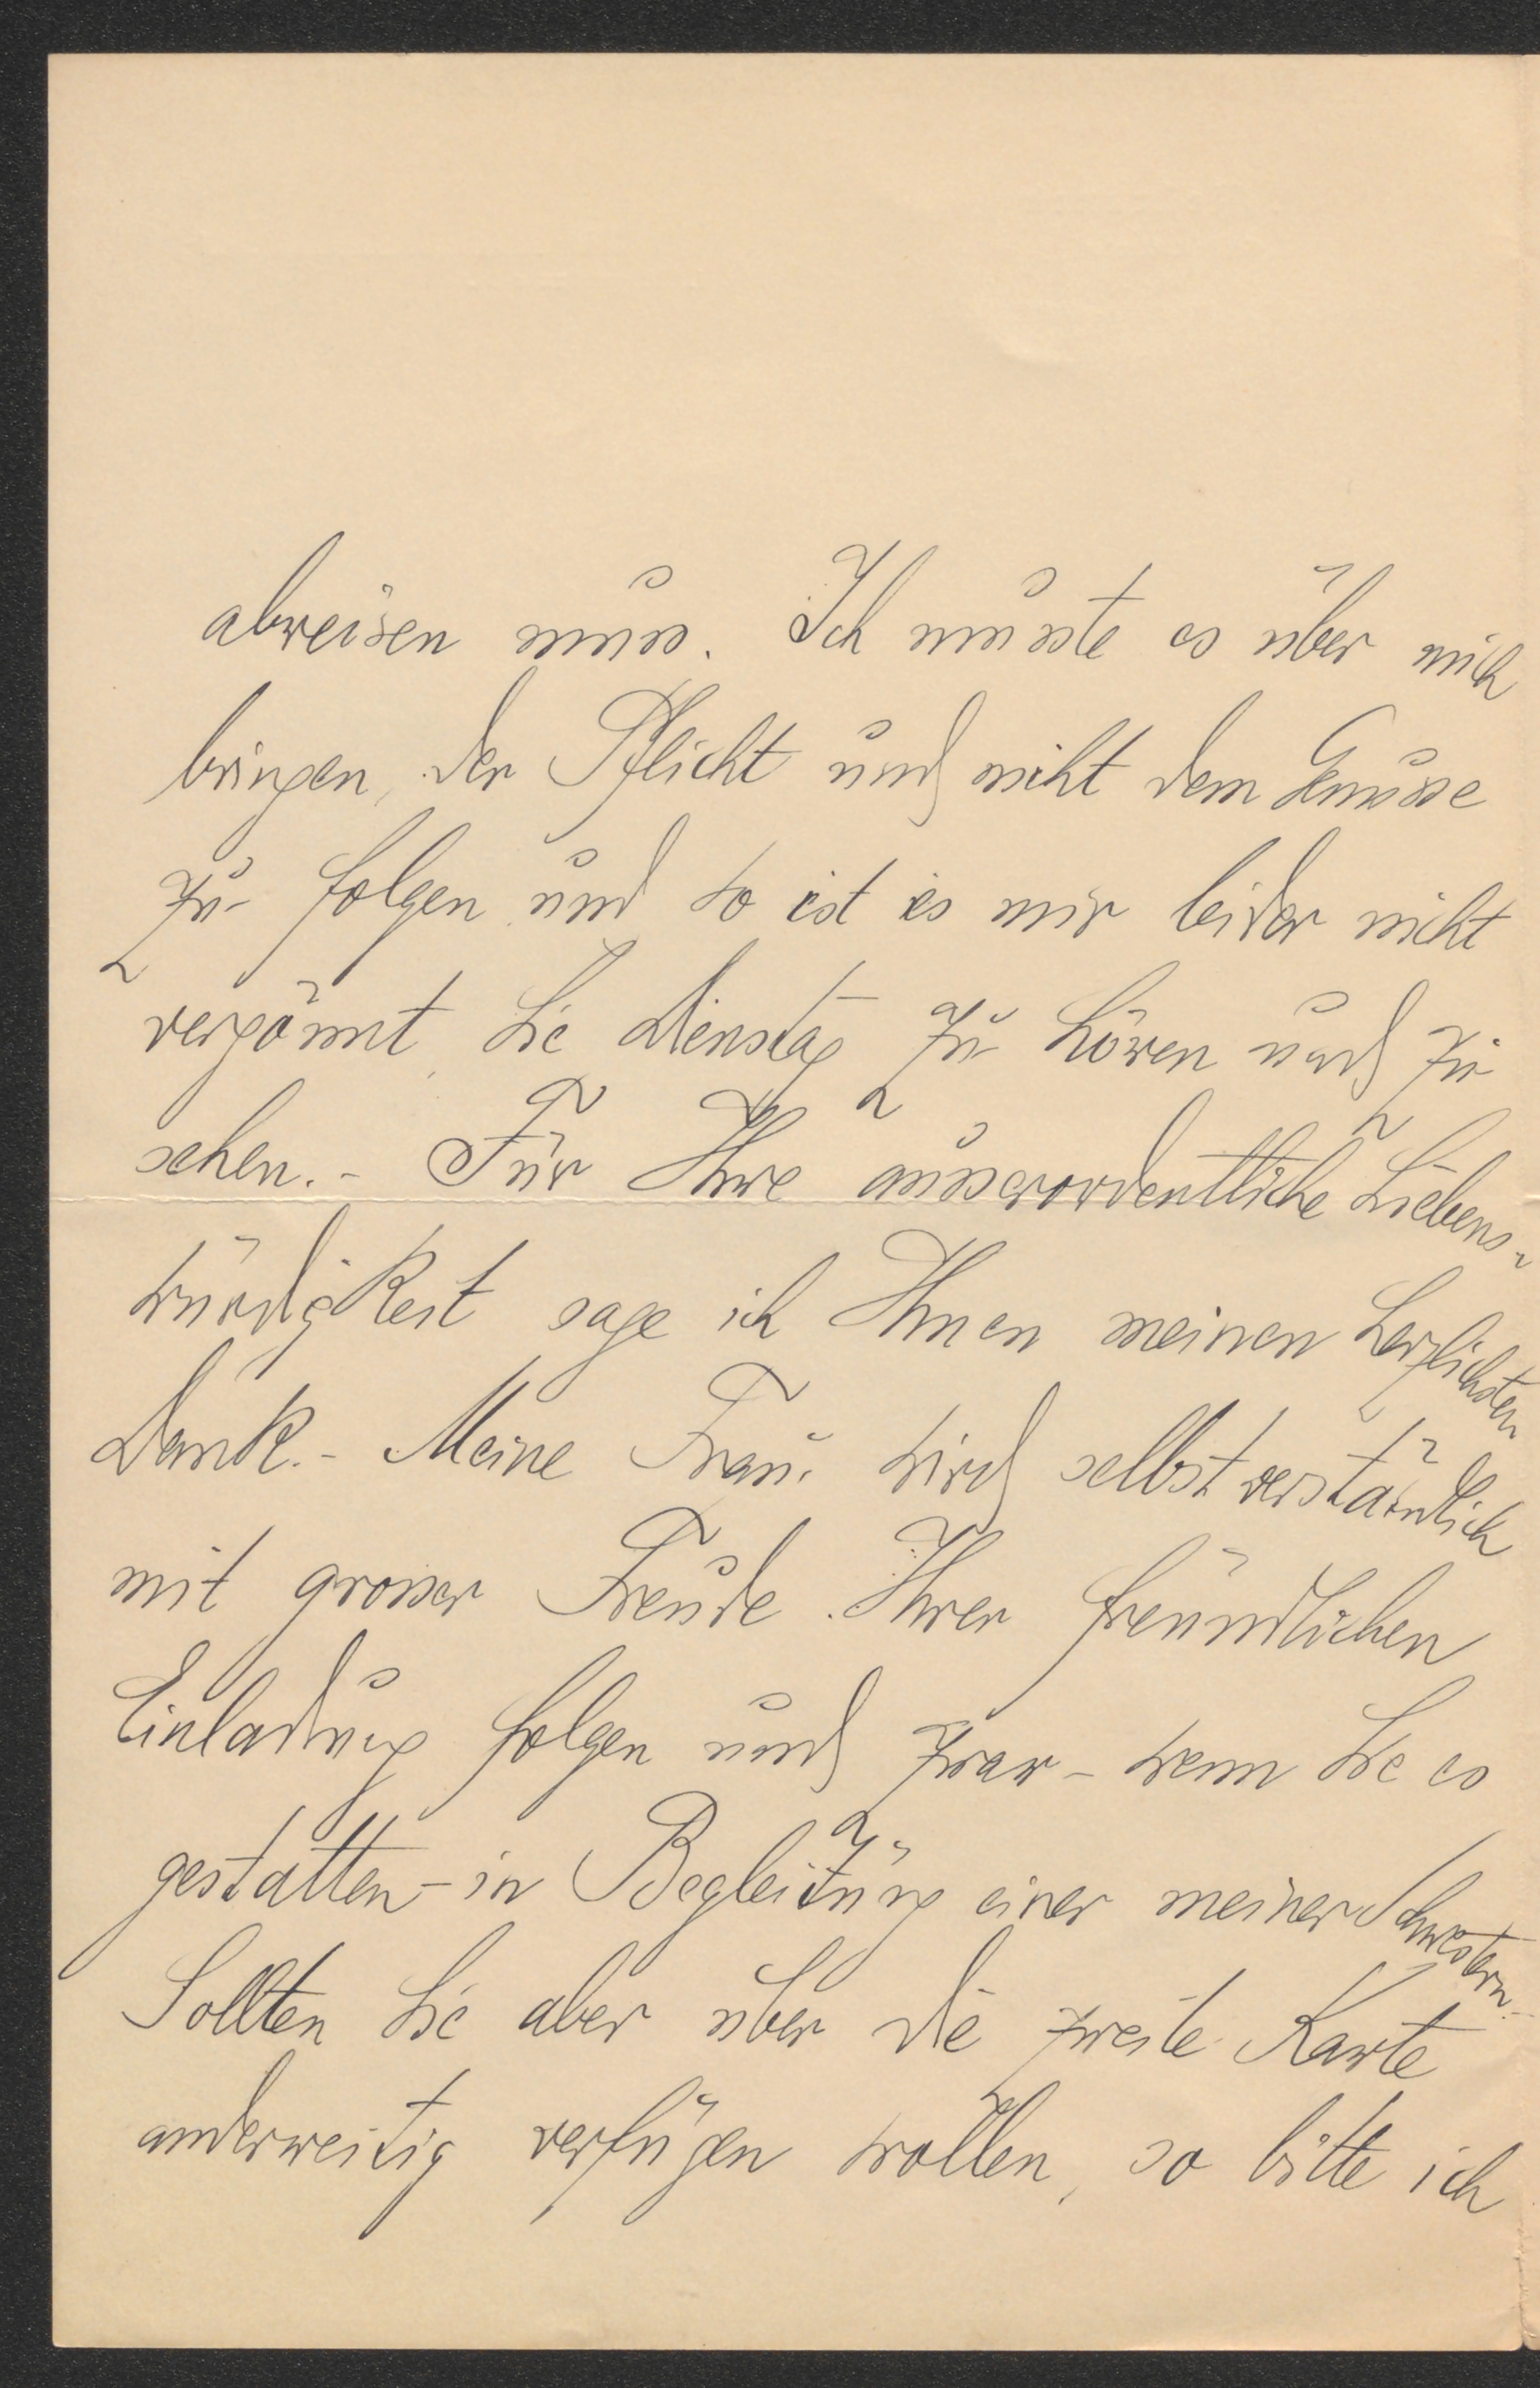 abweisen muss. Ich musste es über mich
bringen, der Pflicht und nicht dem Genusse
zu folgen und so ist es mir leider nicht
vergönnt, Sie Dienstag zu hören und zu
sehen. - Für Ihre ausserordentliche Liebens-
würdigkeit sage ich Ihnen meinen herzlichsten
Dank. - Meine Frau wird selbstverständlich
mit grosser Freude Ihrer freundlichen
Einladung folgen und zwar - wenn Sie es
gestatten - in Begleitung einer meiner Schwestern.
Sollten Sie aber über die zweite Karte
anderweitig verfügen wollen, so bitte ich